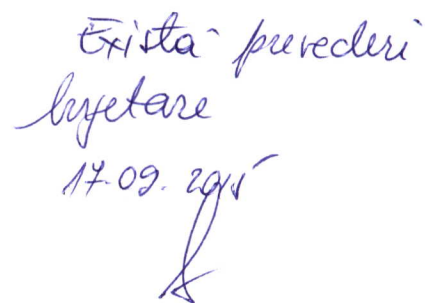 Există prevederi
bugetare
17.09.2015